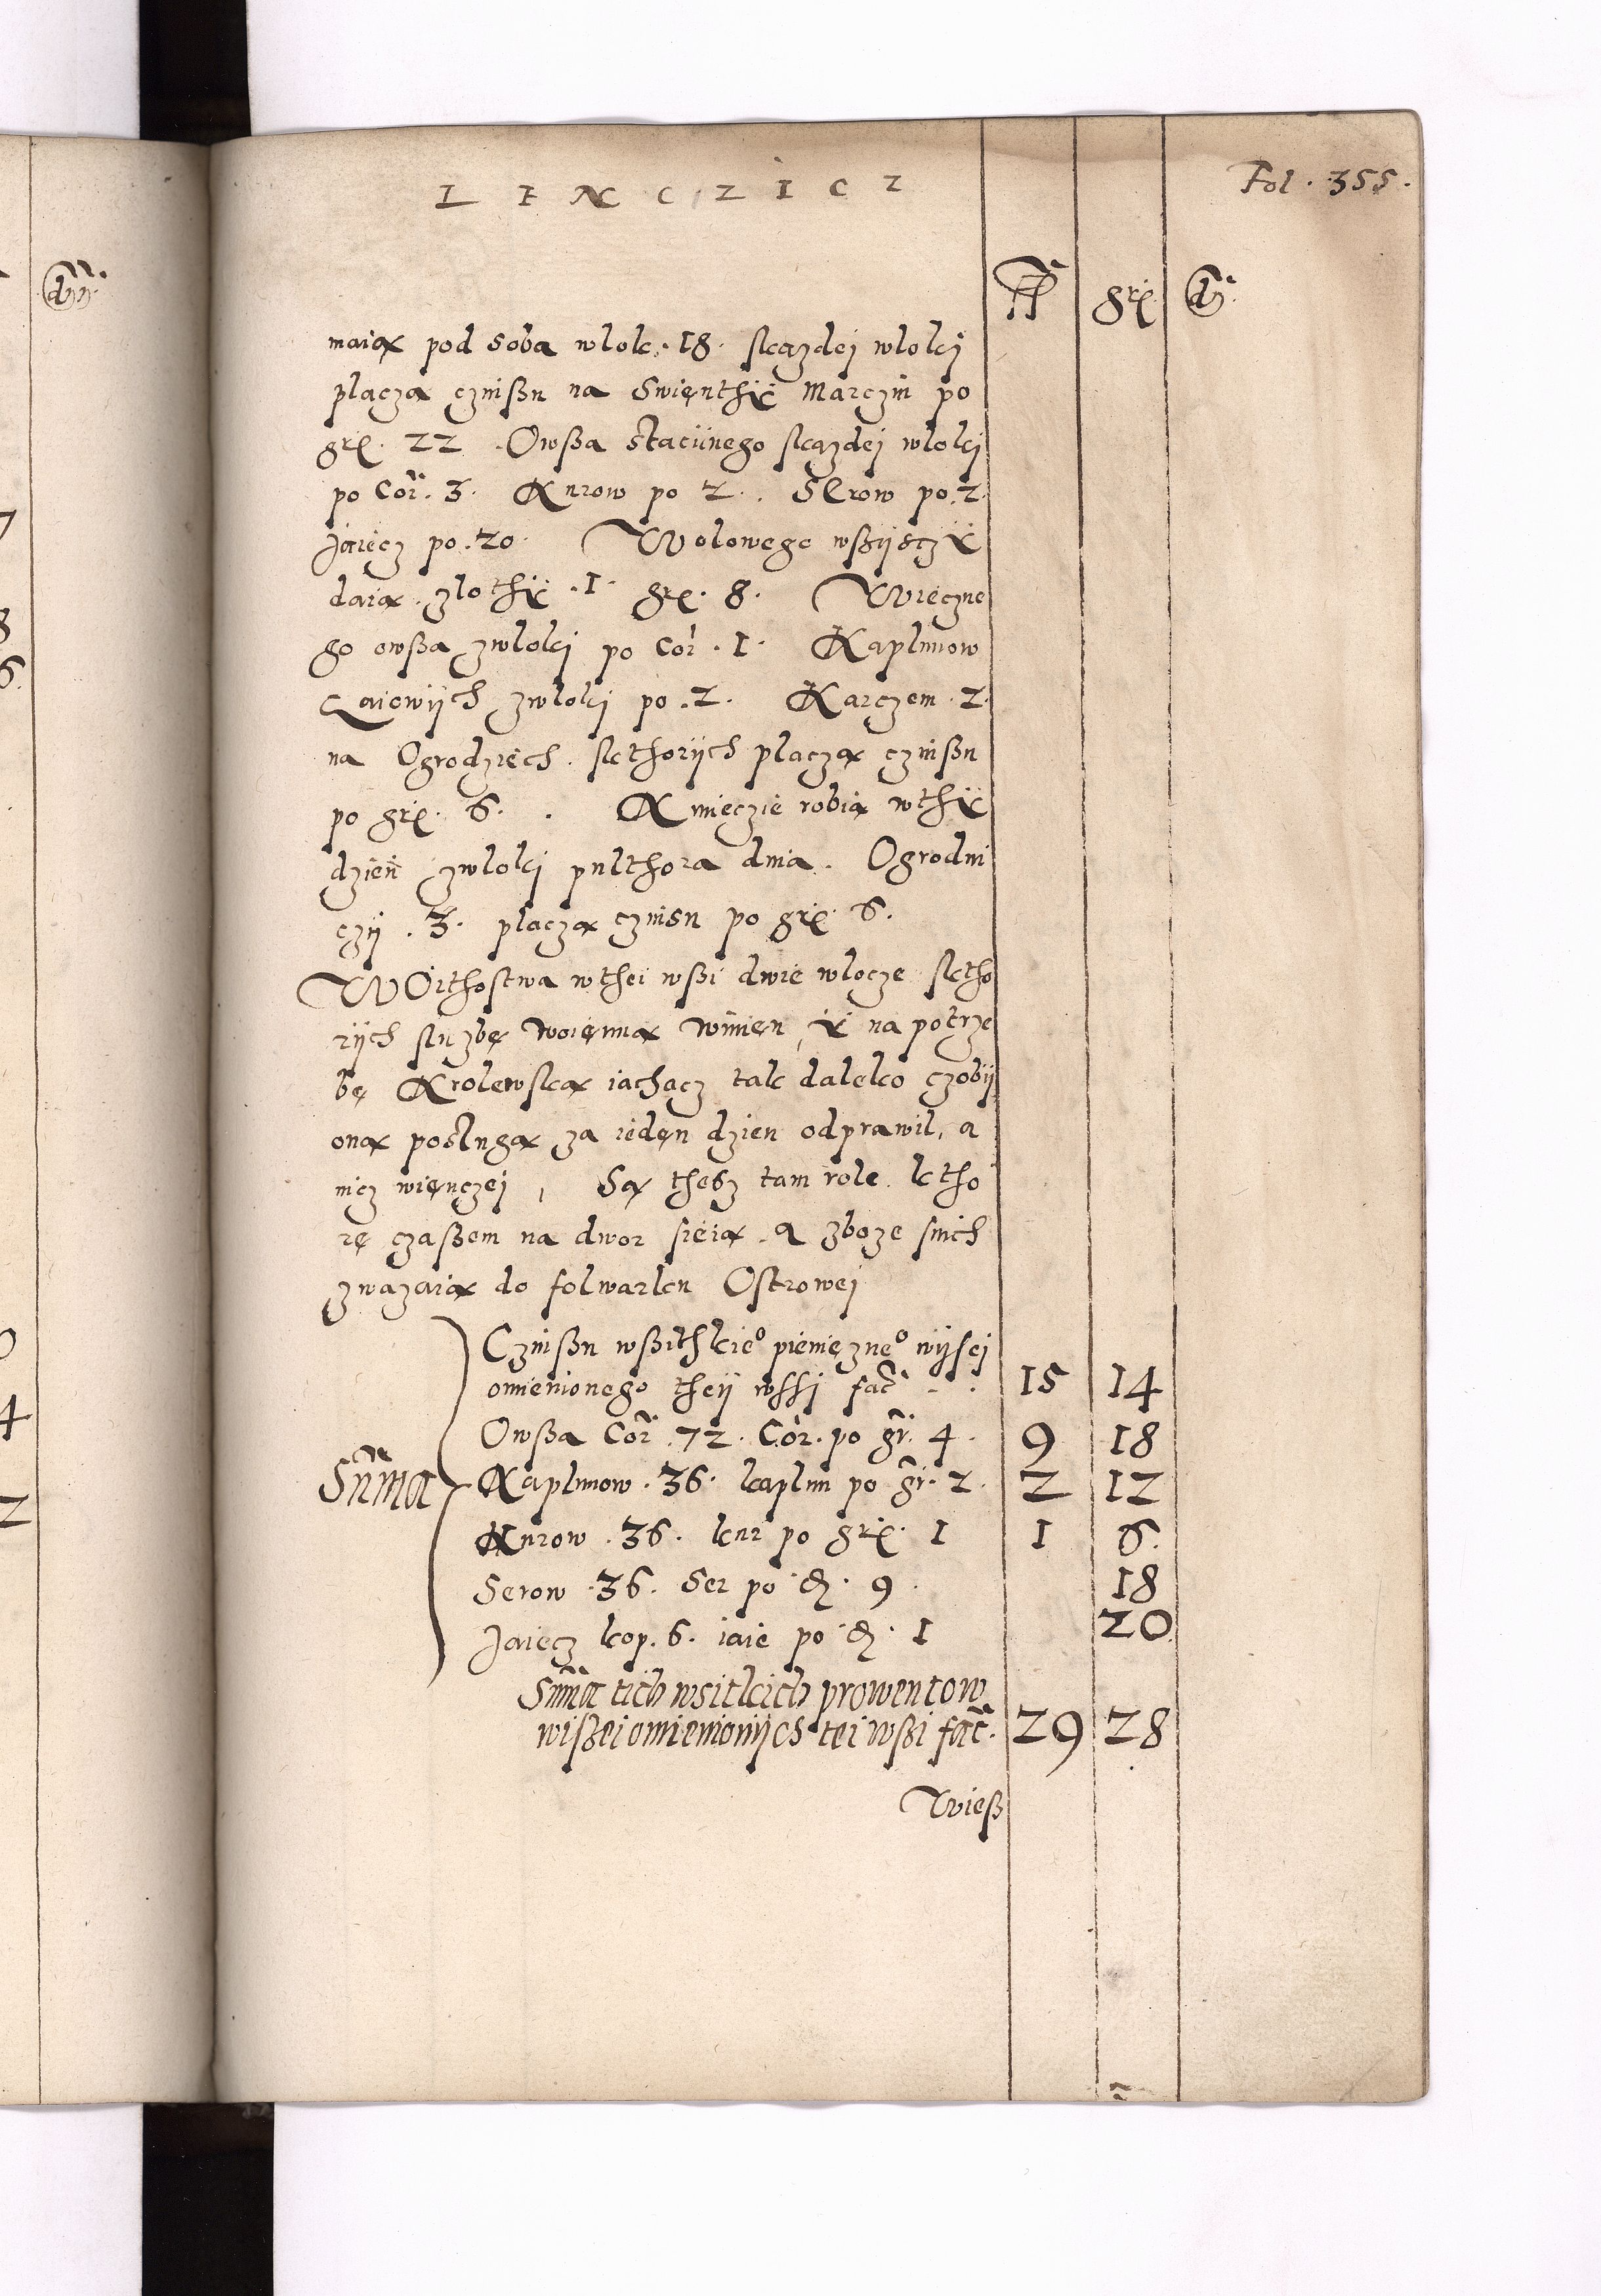 LENCZICZ
Fol. 355.
fl grꝭ dn
maią pod soba wlok. 18. skazdej wloki
placza czinßu na Swięnthÿ Marczin po
grꝭ. 22. Owßa staciinego skazdej wloki
po Cor. 3. Kurow po 2. Serow po. 2.
Jaiecz po. 20. Wolowego wßijsczÿ
daią. zlothÿ. 1. grꝭ. 8. Wieczne
go owßa zwloki po Cor. 1. Kaplunow
Gaiowijch zwloki po. 2. Karczem. 2.
na Ogrodziech. skthorijch placzą czinßu
po grꝭ. 6. Kmięczie robią wthÿ
dzien zwloki pulthora dnia. Ogrodni
czij. 3. placzą czinsu po grꝭ 6.
WOithostwa wthei wßi dwie wlocze sktho
rijch sluzbę woięnną winien, ÿ na potrze
bę Krolewską iachacz tak daleko czobij
oną poslugą za iedęn dzien odprawil, a
nicz więnczej, Są thesz tam role ktho
rę czaßem na dwor sieią. a zboze snich
zwazaią do folwarku Ostrowej
Czinßu wßithkie⁰ pienięzne⁰ wijsej
omienionego theij wssj fac̃ 15 14
Owßa Cor. 72. Cor. po gr. 4. 9 18
Sum̃a Kaplunow. 36. kaplun po gr. 2. 2 12
Kurow. 36. kur po grꝭ. 1 1 6.
Serow. 36. Ser po đ. 9. 18
Jaiecz kop. 6. iaie po đ. 1 20.
Sum̃a tich wsitkich prowentow
wißei omienionijch tei wßi fac̃. 29 28
Wieß